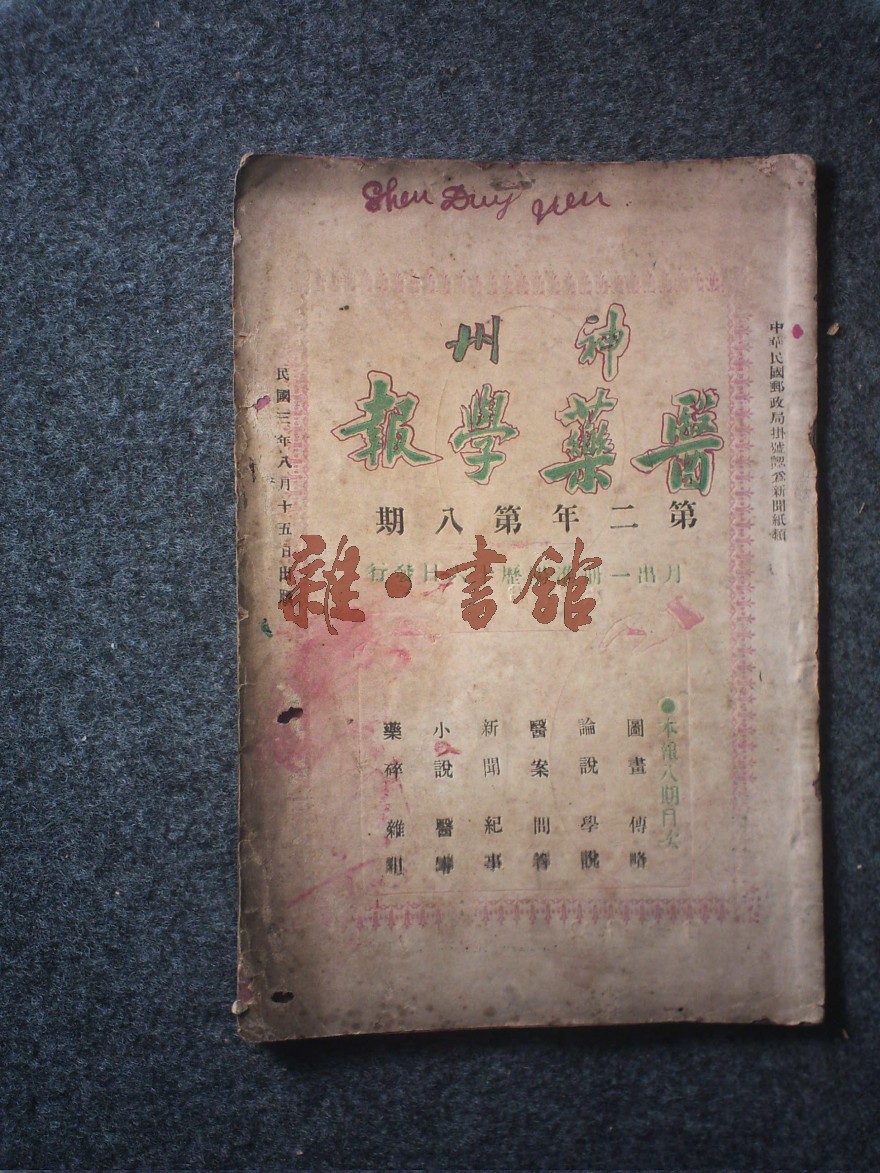 Shen Duy yuen
神州
醫藥學報
第二年第八期
月出一冊 歷十六日發行
中華民國郵政局掛號認為新聞紙類
民國三年八月十五日出版
雜·書館
●本報八期目次
圖畫 傳略
論說 學說
醫案 問答
新聞 紀事
小說 醫
藥碎 雜俎